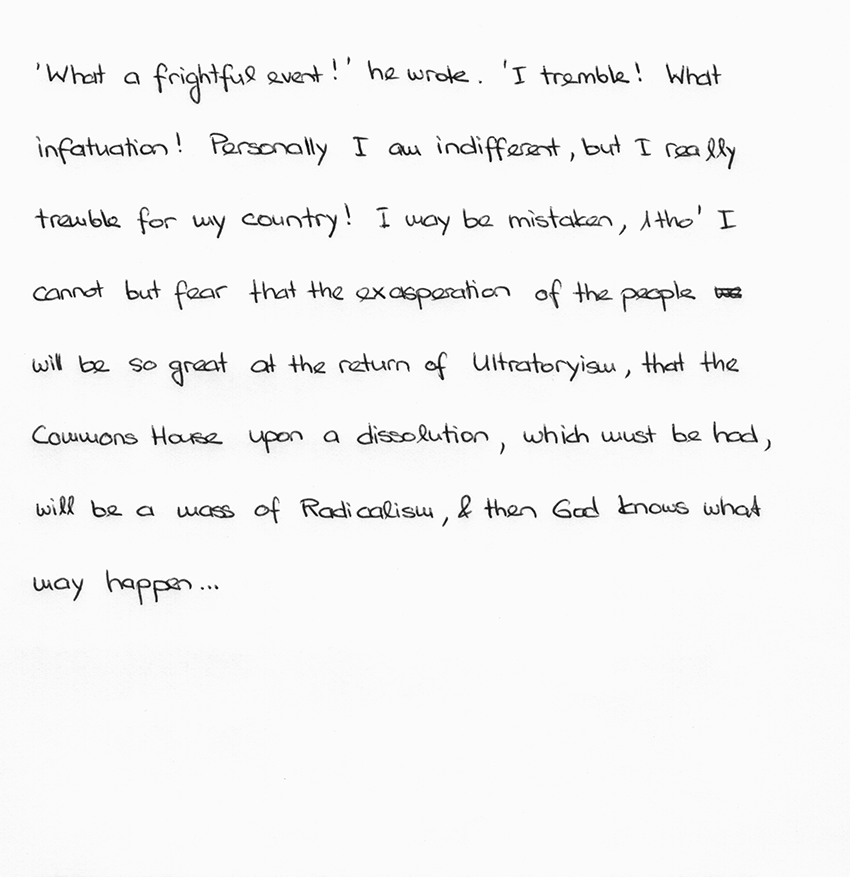 'What a frightful event!' he wrote. 'I tremble! What
infatuation! Personally I am indifferent, but I really
tremble for my country! I may be mistaken, Altho' I
cannot but fear that the exasperation of the people
will be so great at the return of Ultratoryism, that the
Commons House upon a dissolution, which must be had,
will be a mass of Radicalism, & then God knows what
may happen...